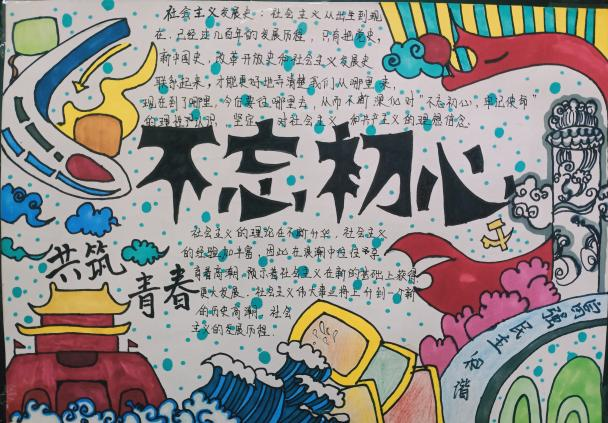 社会主义发展史：社会主义从出生到现
在，已经过几百年的发展历程，只有把党史，
新中国史，改革开放史和社会主义发展史
联系起来，才能更好地弄清楚我们从哪里来
现在到了哪里，今后要往哪里去，从而不断深化对"不忘初心，牢记使命"
的理性认识，坚定对社会主义和共产主义的理想信念.
不忘初心
社会主义的理论在不断升华，社会主义
的经验加丰富，因此在浪潮中
着高潮，预示着社会主义在新的基础上获得
更大发展.社会主义伟大事业将上升到一个新
的历史高潮.社会
主义的发展历程.
共筑
青春
富强
民主
和谐